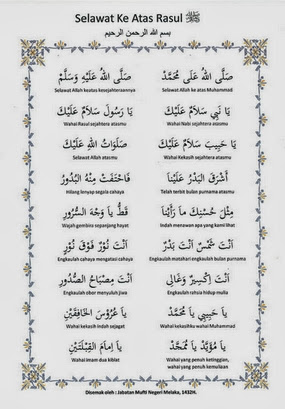 Selawat Ke Atas Rasul ﷺ
بسم الله الرحمن الرحيم
صَلَّى اللهُ عَلَى مُحَمَّدْ صَلَّى اللهُ عَلَيْهِ وَسَلَّمْ
Selawat Allah ke atas Muhammad Selawat Allah keatas kesejahteraannya
يَا نَبِي سَلَامٌ عَلَيْكَ يَا رَسُولَ سَلَامٌ عَلَيْكَ
Wahai Nabi sejahtera atasmu Wahai Rasul sejahtera atasmu
يَا حَبِيبَ سَلَامٌ عَلَيْكَ صَلَوَاتُ اللهِ عَلَيْكَ
Wahai Kekasih sejahtera atasmu Selawat Allah atasmu
أَشْرَقَ الْبَدْرُ عَلَيْنَا فَاخْتَفَتْ مِنْهُ الْبُدُورُ
Telah terbit bulan purnama atasmu Hilang lenyap segala cahaya
مِثْلَ حُسْنِكَ مَا رَأَيْنَا قَطُّ يَا وَجْهَ السُّرُورِ
Indah menawan apa yang kami lihat Wajah gembira sepanjang hayat
أَنْتَ شَمْسٌ أَنْتَ بَدْرٌ أَنْتَ نُورٌ فَوْقَ نُورٍ
Engkaulah matahari engkaulah bulan purnama Engkaulah cahaya mengatasi cahaya
أَنْتَ إِكْسِيرٌ وَغَالِي أَنْتَ مِصْبَاحُ الصُّدُورِ
Engkaulah rahsia hidup mulia Engkaulah obor menyuluh jiwa
يَا حَبِيبِي يَا مُحَمَّدْ يَا عَرُوْسَ الْخَافِقَيْنِ
Wahai kekasihku wahai Muhammad Wahai kekasih indah sejagat
يَا مُؤَيَّدْ يَا مُمَجَّدْ يَا إِمَامَ الْقِبْلَتَيْنِ
Wahai yang penuh ketinggian, Wahai imam dua kiblat
wahai yang penuh kemuliaan
Disemak oleh : Jabatan Mufti Negeri Melaka, 1432H.